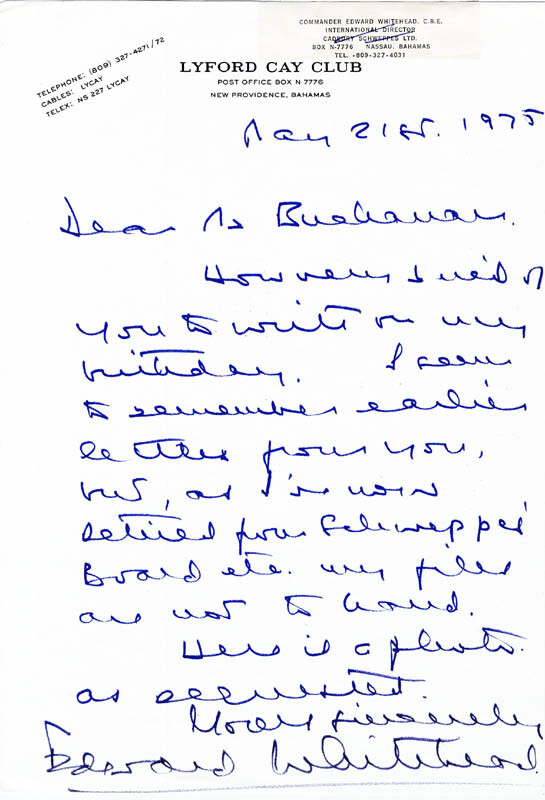 COMMANDER EDWARD WHITEHEAD. C.B.E.
INTERNATIONAL DIRECTOR
CADBURY SCHWEPPES LTD.
BOX N-7776 NASSAU, BAHAMAS
TEL. -809-327-4031
TELEPHONE: (809) 327-4271/72
CABLES: LYCAY
TELEX: NS 227 LYCAY
LYFORD CAY CLUB
POST OFFICE BOX N 7776
NEW PROVIDENCE, BAHAMAS
May 21st. 1975
Dear Mr Buchanan.
How very kind of
you to write on my
birthday. I seem
to remember earlier
letters from you,
but, as I'm now
retired from Schweppes'
Board etc. my files
are not to hand.
Here is a photo.
as requested.
Yours sincerely
Edward Whitehead